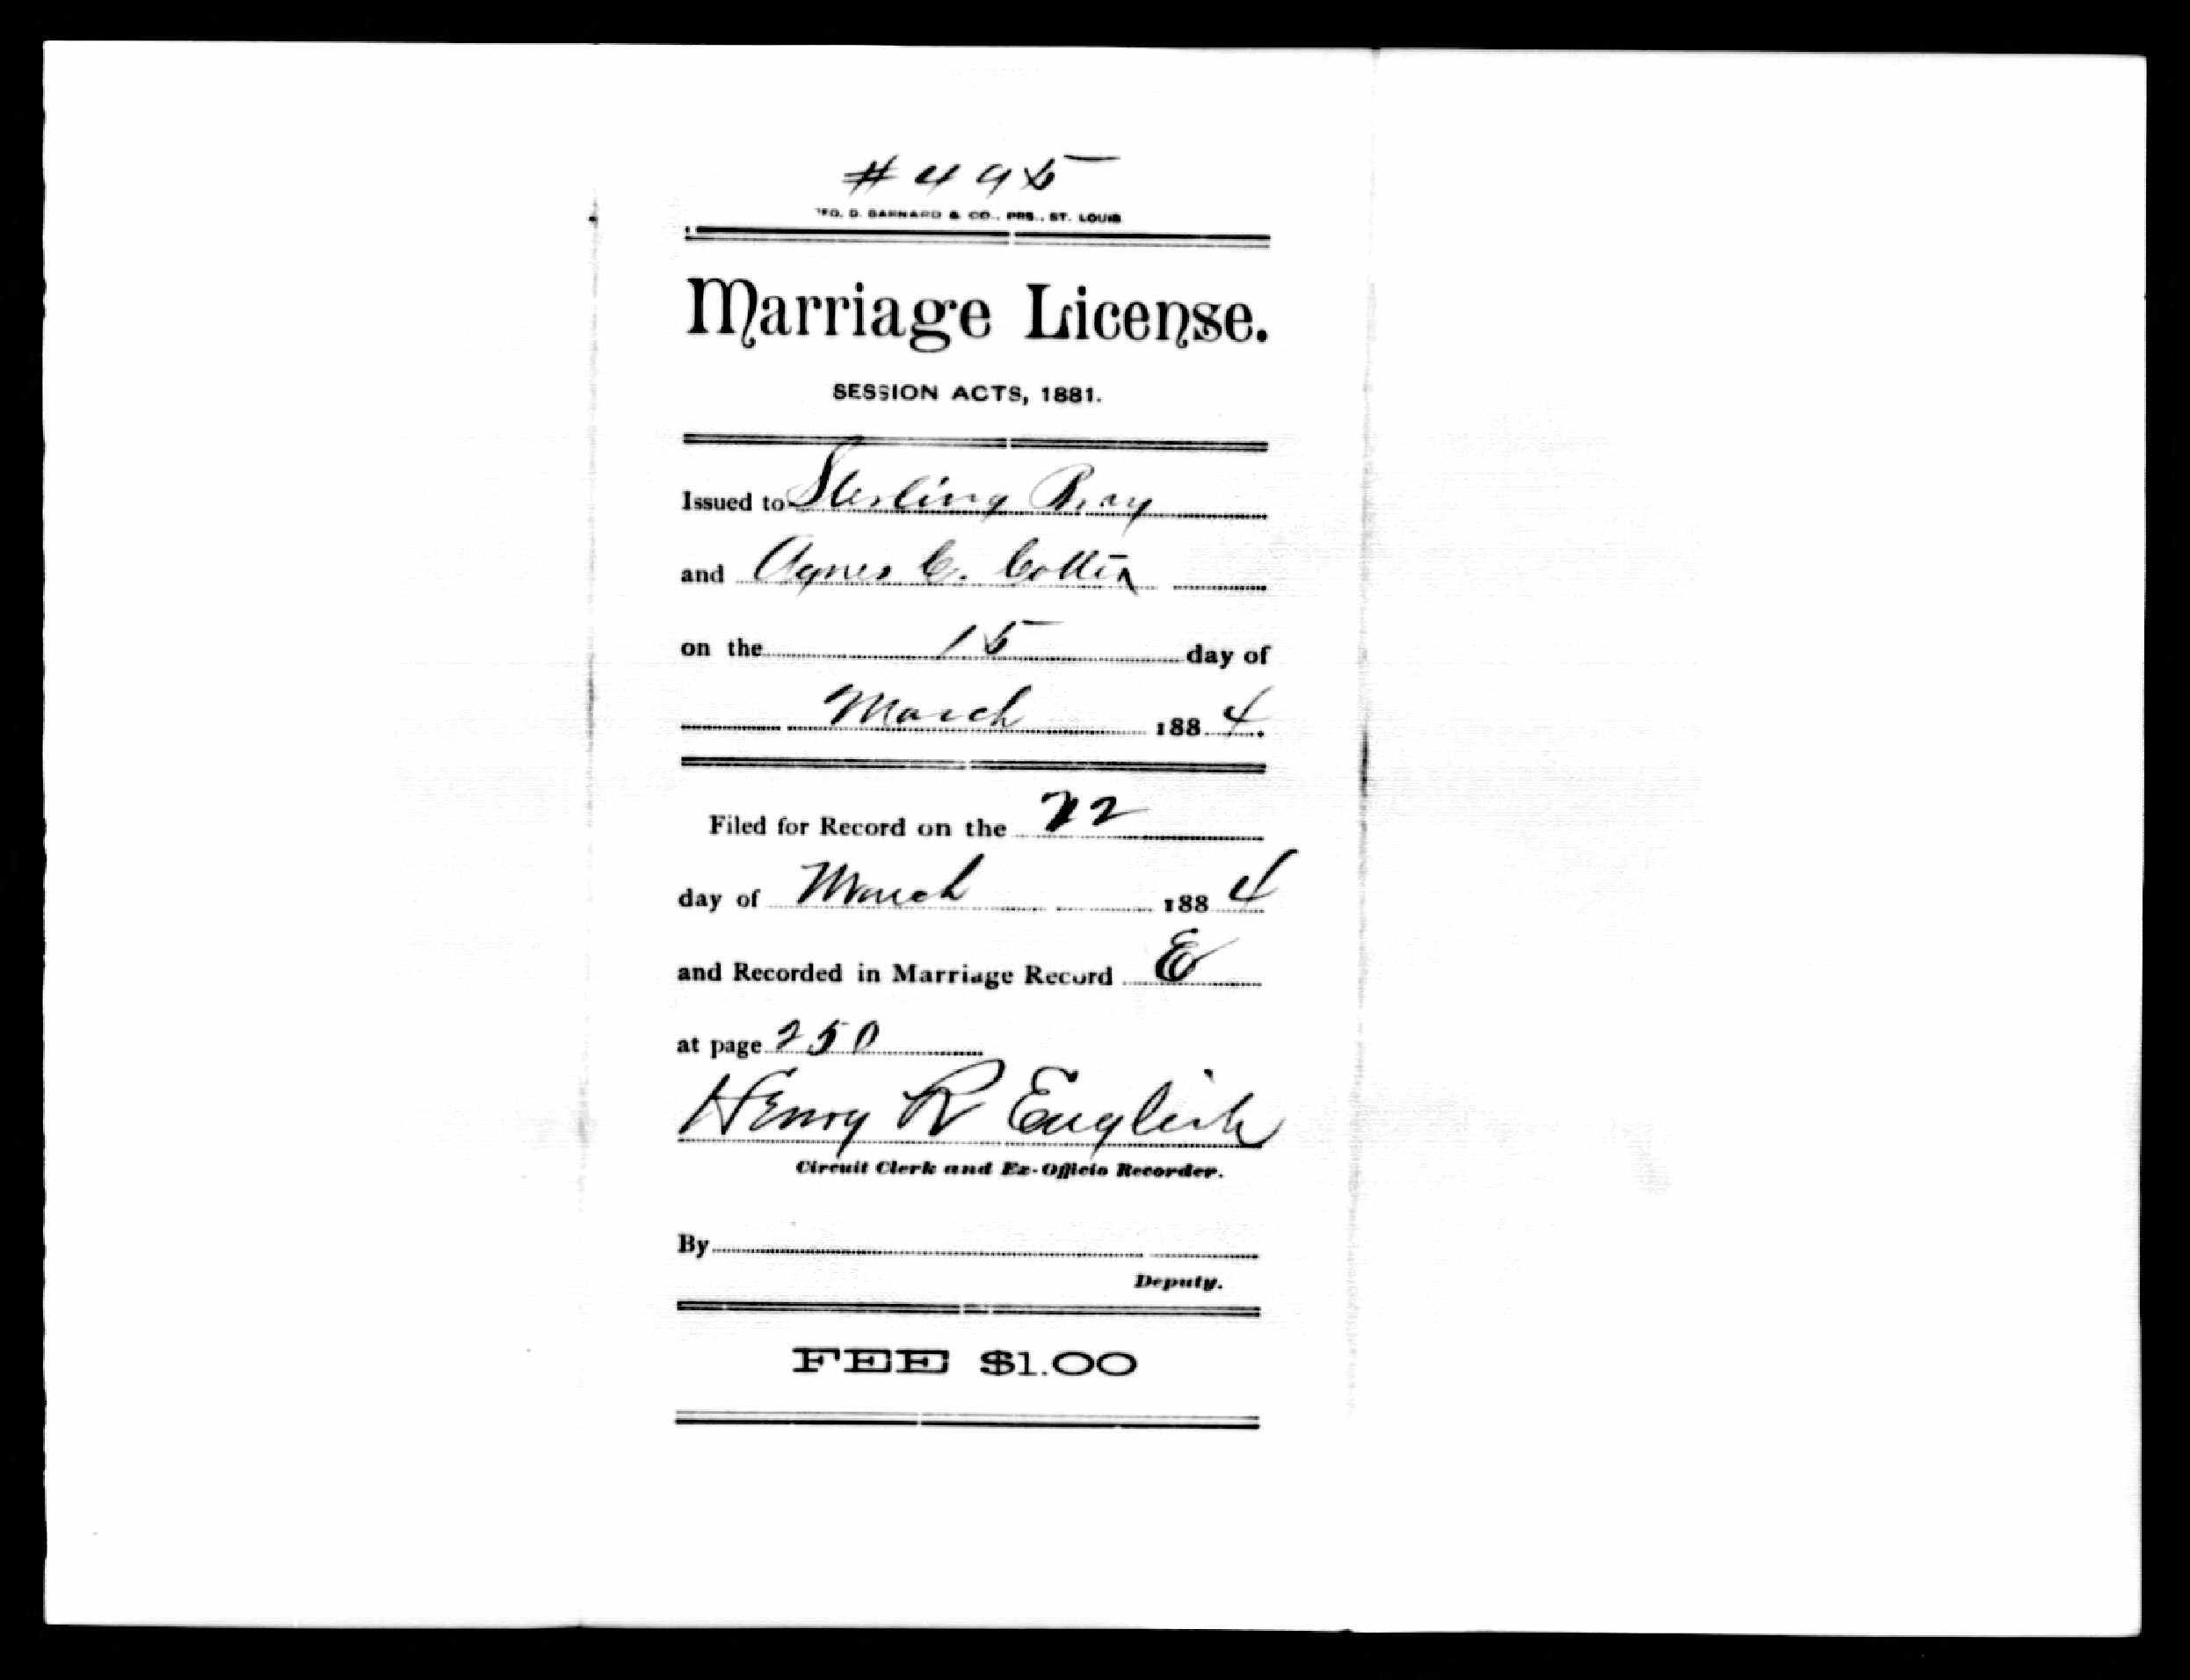 #495
GEO. D. BARNARD & CO., PRS., ST. LOUIS
Marriage License.
SESSION ACTS, 1881.
Issued to Sterling Bray
and Agnes C.
on the 15 day of
March 1884.
Filed for Record on the 22
day of March 1884
and Recorded in Marriage Record E
at page 250
Henry R English
Circuit Clerk and Ex-Officio Recorder.
By
Deputy.
FEE $1.00